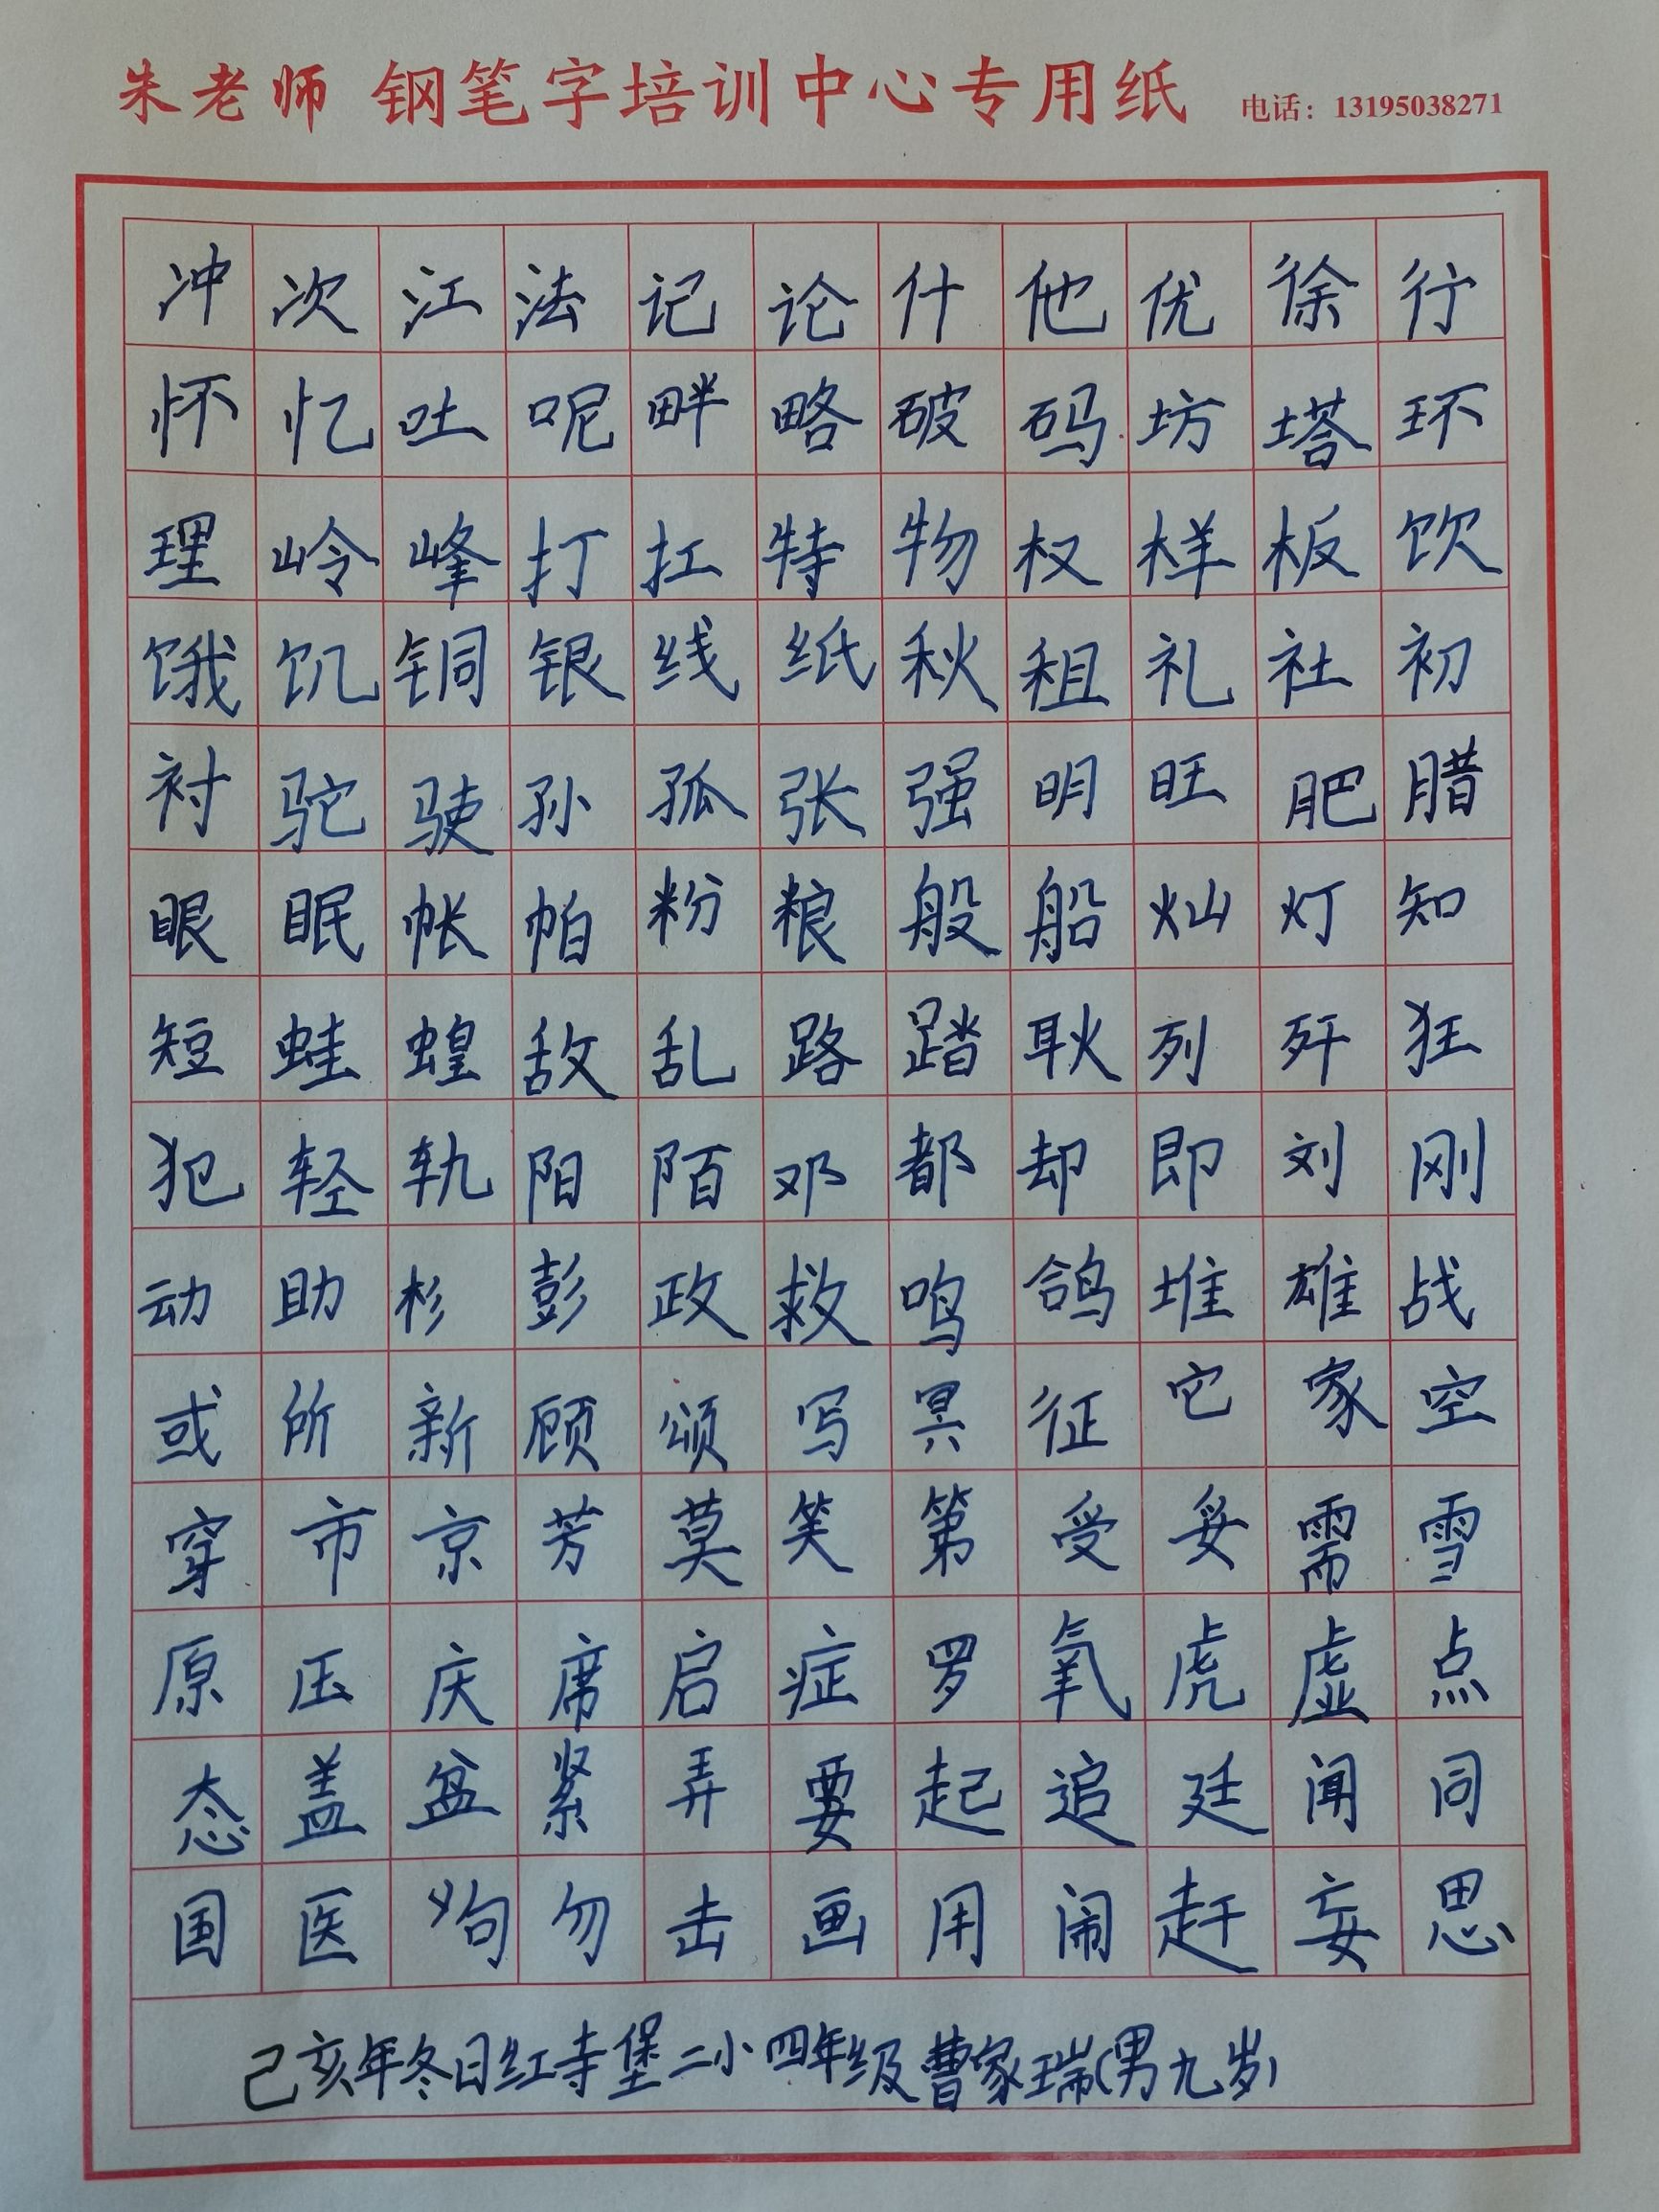 朱老师 钢笔字培训中心专用纸 电话：13195038271
冲次江法记论什他优徐行
怀忆吐呢畔略破码坊塔环
理岭峰打扛特物权样板饮
饿饥铜银线纸秋租礼社初
衬驼驶孙孤张强明旺肥腊
眼眠帐帕粉粮般船灿灯知
短蛙蝗敌乱路踏耿列歼狂
犯轻轨阳陌邓都却即刘刚
动助杉彭政救鸣鸽堆雄战
或所新顾颂写冥征它家空
穿市京芳莫笑第受妥需雪
原压庆席启症罗氧虎虚点
态盖盆紧弄要起追廷闻同
国医句勿击画用闹赶妄思
己亥年冬日红寺堡二小四年级曹家瑞(男九岁)